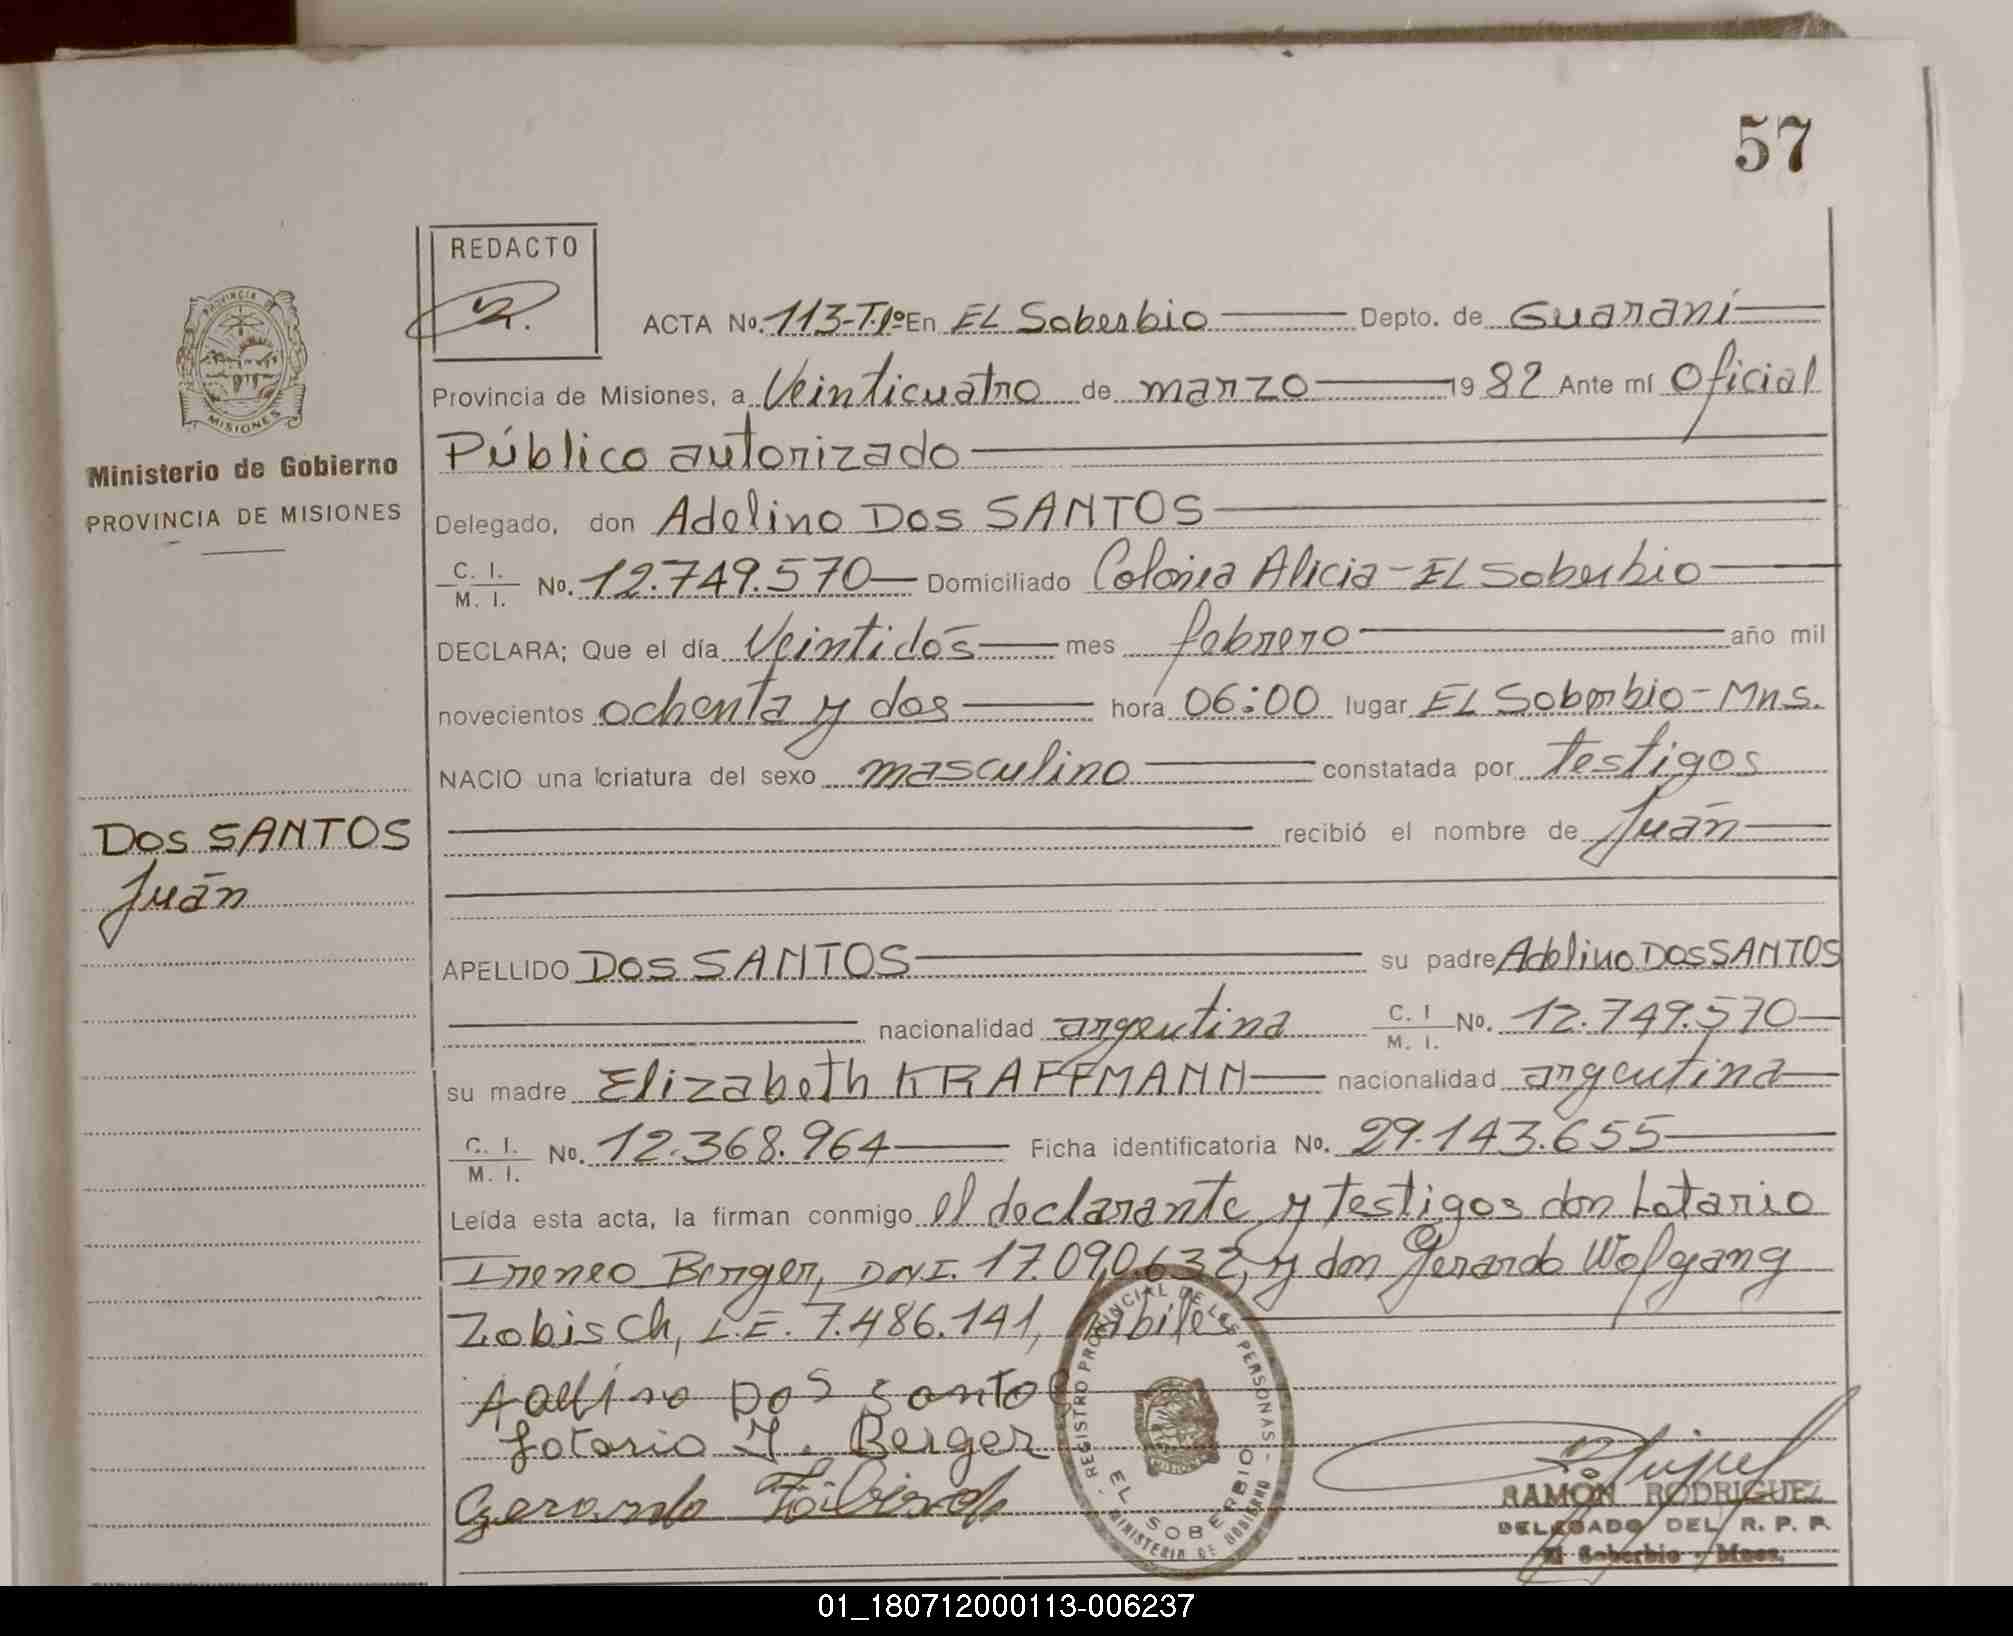 57
REDACTO
ACTA No. 113-T.1º En EL Soberbio Depto. de Guaraní
Provincia de Misiones, a Veinticuatro de marzo 1982 Ante mí Oficial
Público autorizado
PROVINCIA DE MISIONES
Ministerio de Gobierno
PROVINCIA DE MISIONES
Delegado, don Adelino Dos SANTOS
C. I. M. I. No. 12.749.570 Domiciliado Colonia Alicia - EL Soberbio
DECLARA; Que el día Veintidós mes febrero año mil
novecientos ochenta y dos hora 06:00 lugar EL Soberbio - Mns.
NACIO una criatura del sexo masculino constatada por testigos
recibió el nombre de Juán
Dos SANTOS
Juán
APELLIDO Dos SANTOS su padre Adelino Dos SANTOS
nacionalidad argentina C. I M. I. No. 12.749.570
su madre Elizabeth KRAFFMANN nacionalidad argentina
C. I. M. I. No. 12.368.964 Ficha identificatoria No. 29.143.655
Leída esta acta, la firman conmigo el declarante y testigos don Lotario
Ireneo Berger, DNI. 17.090.632, y don Gerardo Wofgang
Zobisch, L.E. 7.486.141, hábiles
Adelino Dos Santos
Lotario I. Berger
Gerardo
REGISTRO PROVINCIAL DE LAS PERSONAS
EL SOBERBIO
MINISTERIO DE GOBIERNO
RAMÓN RODRIGUEZ
DELEGADO DEL R. P. P.
El Soberbio - Mnes.
01_180712000113-006237